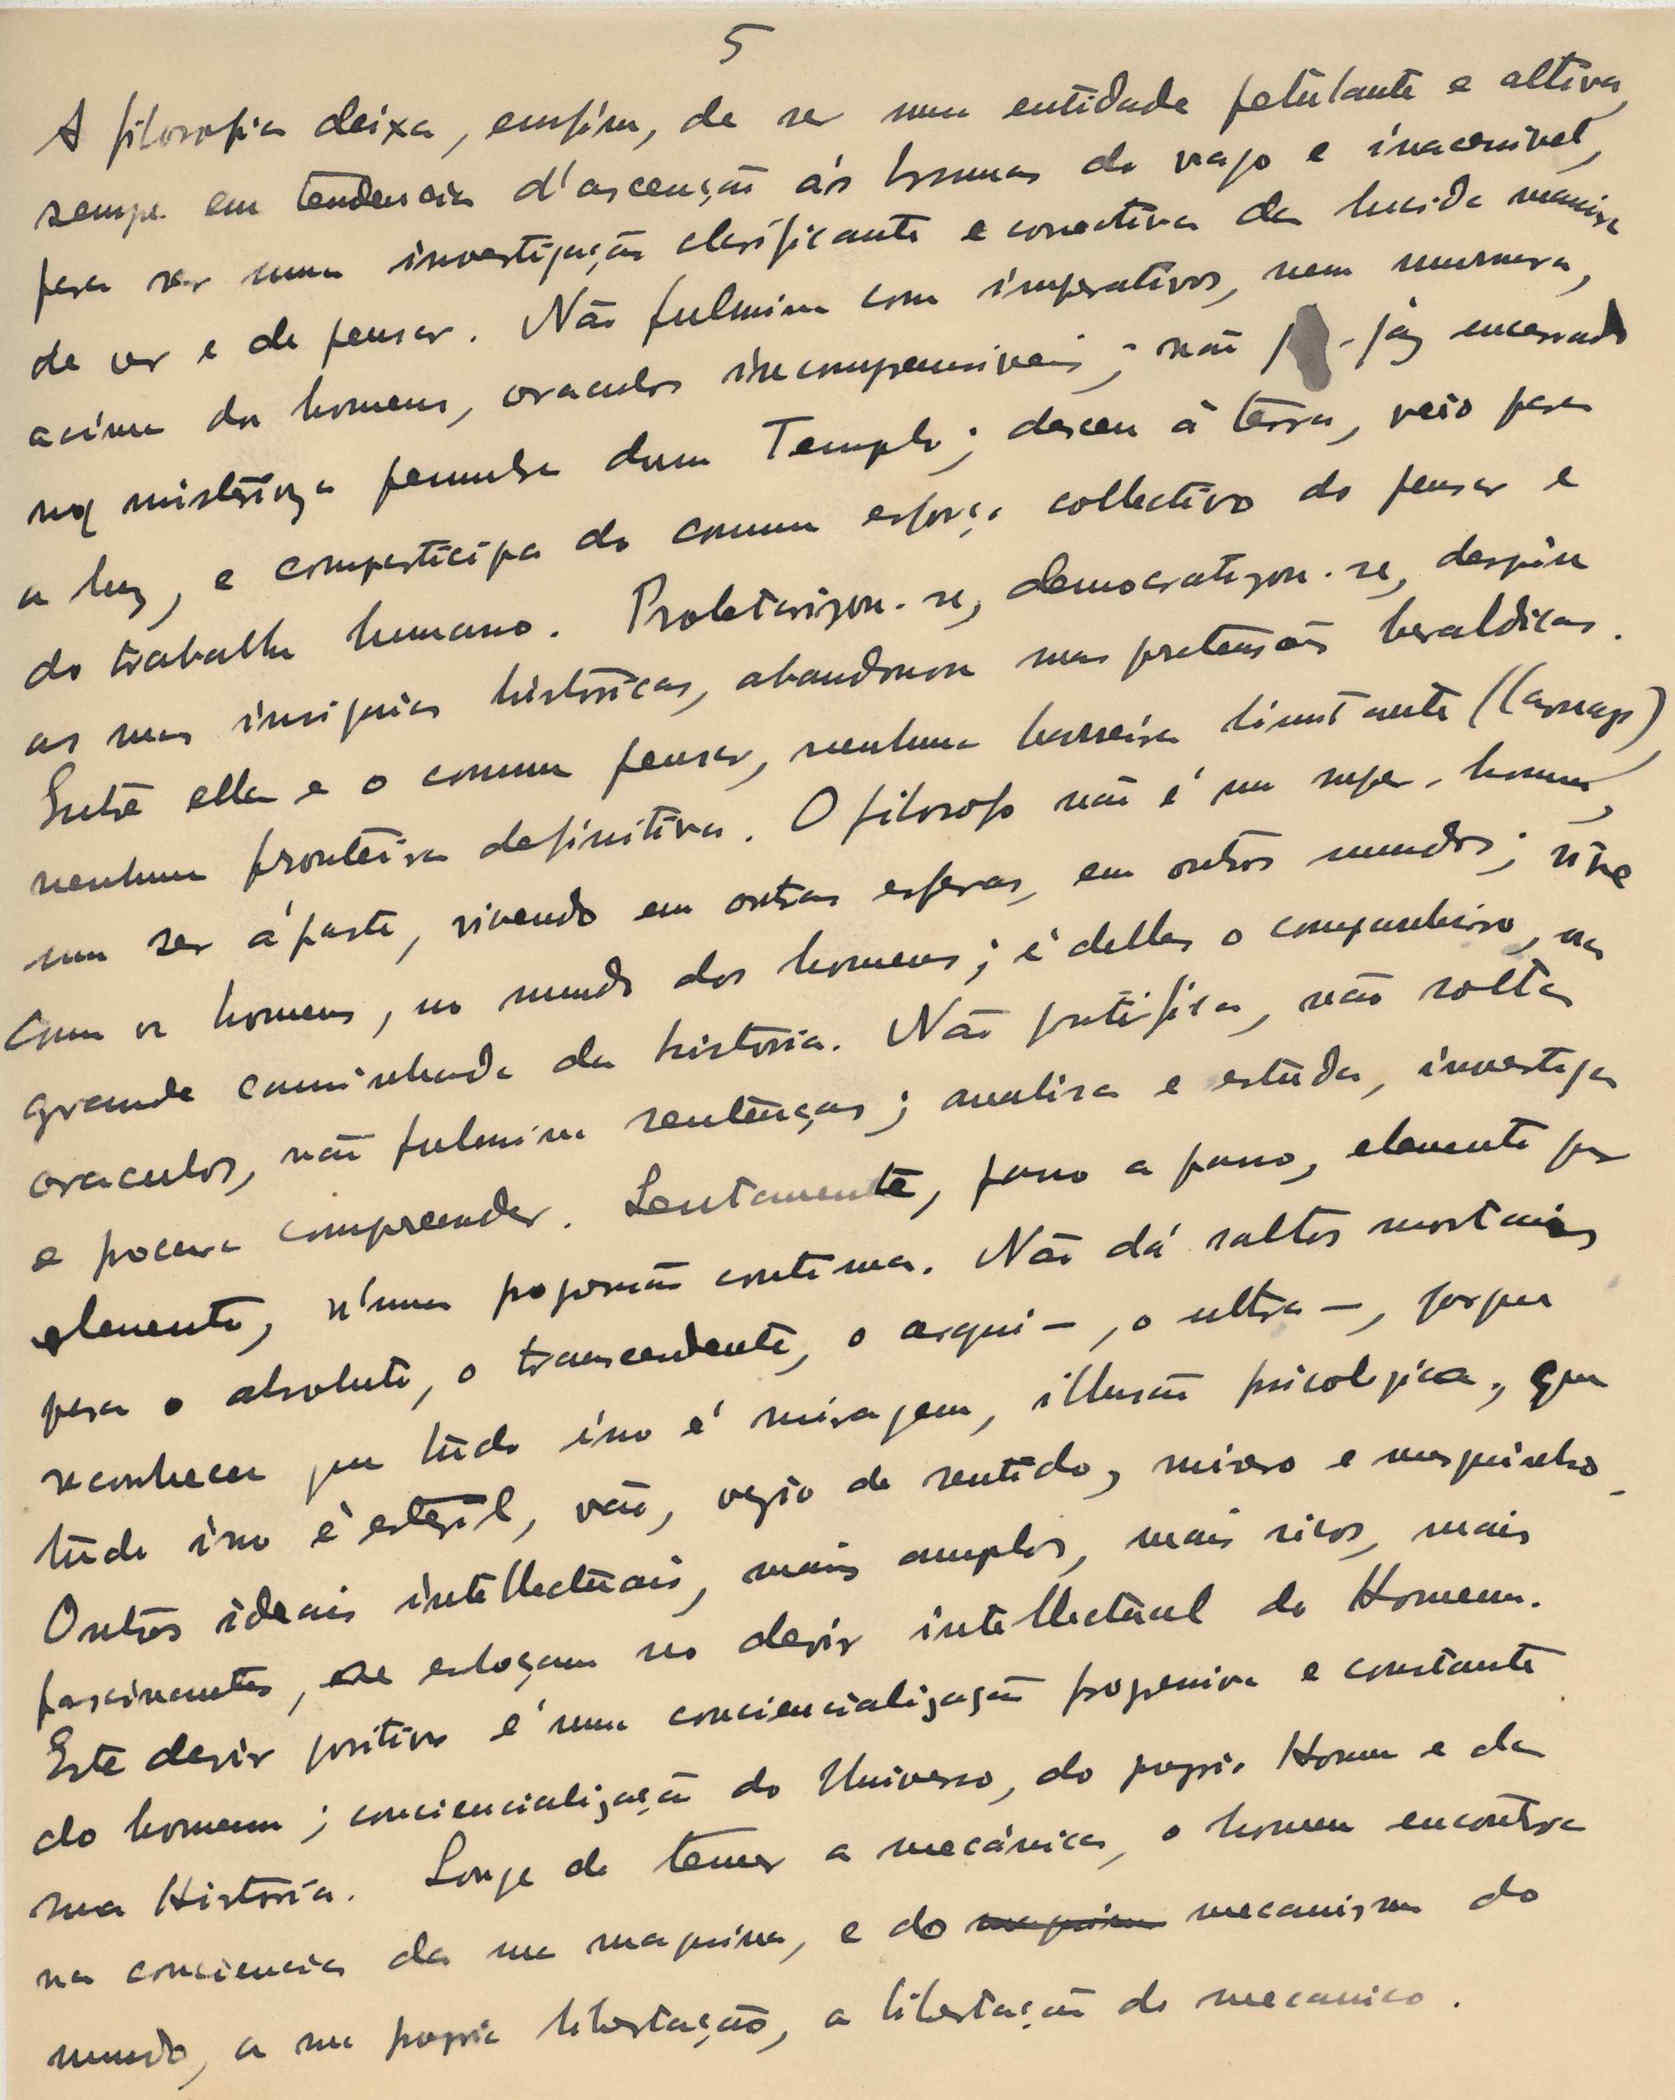 5
A filosofia deixa, emfim, de ser uma entidade petulante e altiva,
sempre em tendencia d'ascenção ás brumas do vago e inacessivel,
para ser uma investigação clarificante e conectiva da lucida maneira
de ver e de pensar. Não fulmina com imperativos, nem murmura,
acima dos homens, oraculos incompreensiveis; não jaz encerrada
na misteriosa penumbra dum Templo; desceu á terra, veio para
a luz, e comparticipa do comum esforço collectivo do pensar e
do trabalho humano. Proletarizou-se, democratizou-se, despiu
as suas insignias historicas, abandonou suas pretensões heraldicas.
Entre ella e o comum pensar, nenhuma barreira limitante (Carnap),
nenhuma fronteira definitiva. O filosofo não é um super-homem,
um ser áparte, vivendo em outras esferas, em outros mundos; vive
com os homens, no mundo dos homens; é delles o companheiro, na
grande caminhada da historia. Não pontifica, não solta
oraculos, não fulmina sentenças; analisa e estuda, investiga
e procura compreender. Lentamente, passo a passo, elemento por
elemento, n'uma progressão continua. Não dá saltos mortais
para o absoluto, o transcendente, o arqui-, o ultra-, porque
reconhece que tudo isso é miragem, illusão psicologica, que
tudo isso é esteril, vão, vazio de sentido, misero e mesquinho.
Outros ideais intellectuais, mais amplos, mais ricos, mais
fascinantes, se esboçam no devir intellectual do Homem.
Este devir positivo é uma conciencialização progressiva e constante
do homem; conciencialização do Universo, do proprio Homem e da
sua Historia. Longe de temer a mecánica, o homem encontra
na conciencia da sua maquina, e do maquina mecanismo do
mundo, a sua propria libertação, a libertação do mecanico.